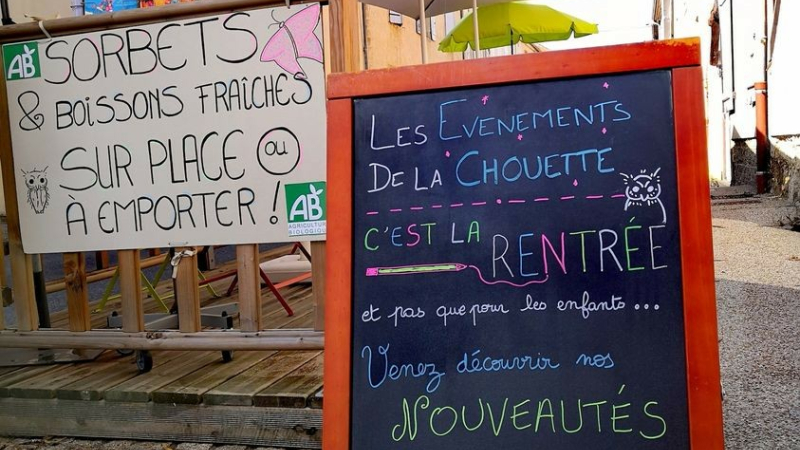 AB
SORBETS
& BOISSONS FRAÎCHES
SUR PLACE OU
À EMPORTER !
AB
AGRICULTURE
BIOLOGIQUE
LES EVENEMENTS
DE LA CHOUETTE
C'EST LA
RENTRÉE
et pas que pour les enfants ...
Venez découvrir nos
NOUVEAUTÉS